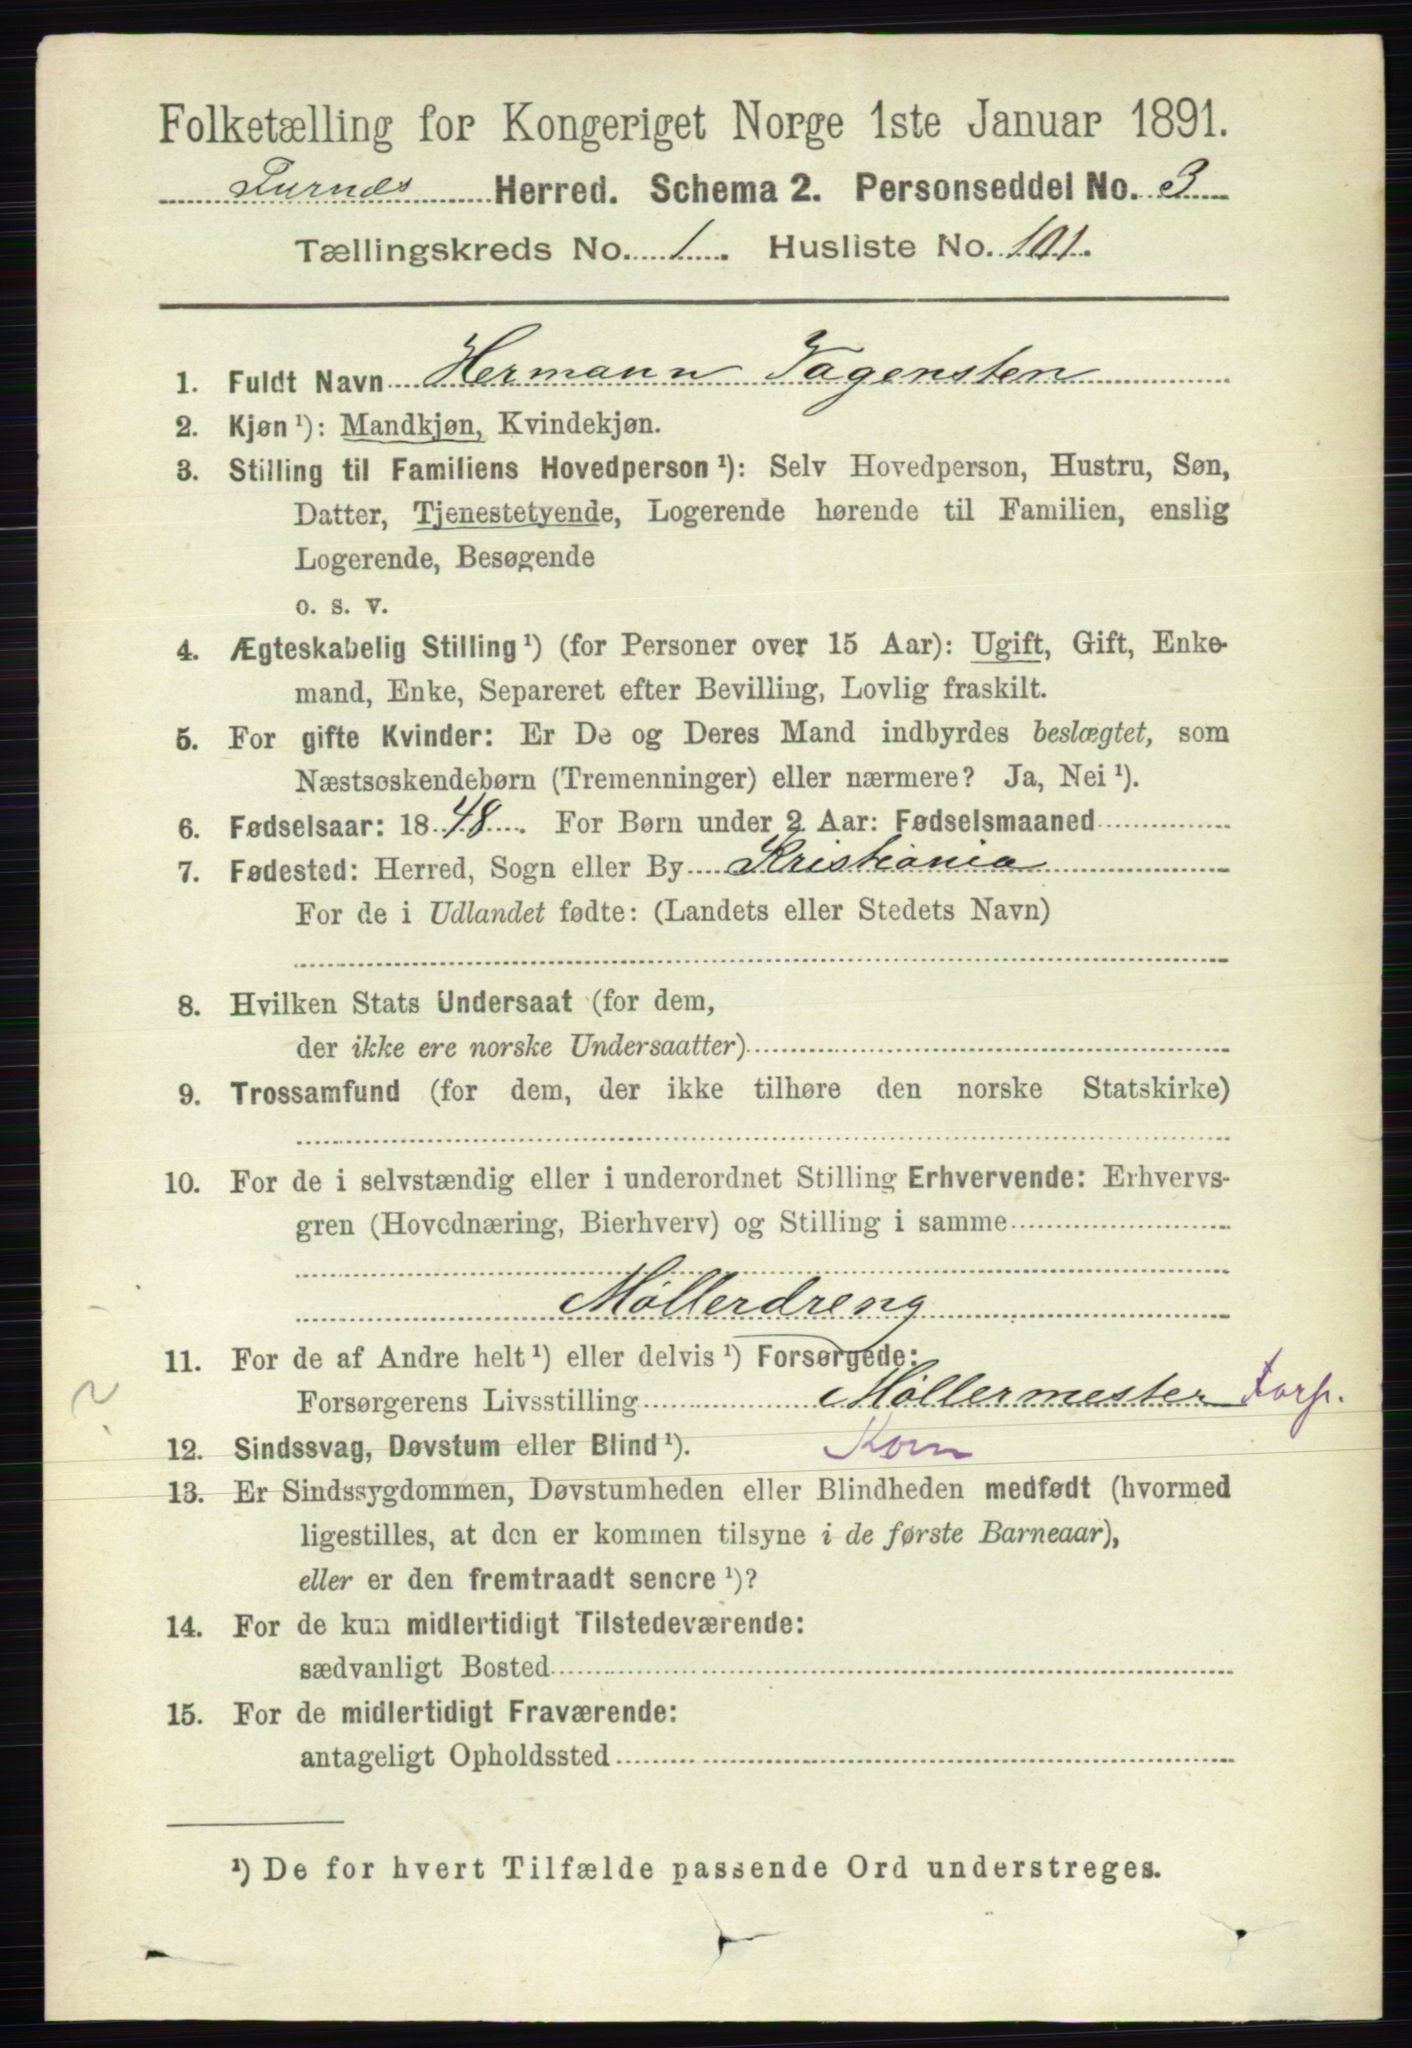 Folketælling for Kongeriget Norge 1ste Januar 1891.
Furnæs Herred. Schema 2. Personseddel No. 3
Tællingskreds No. 1. Husliste No. 101.
1. Fuldt Navn Hermann Fagensten
2. Kjøn ¹): Mandkjøn, Kvindekjøn.
3. Stilling til Familiens Hovedperson ¹): Selv Hovedperson, Hustru, Søn,
Datter, Tjenestetyende, Logerende hørende til Familien, enslig
Logerende, Besøgende
o. s. v.
4. Ægteskabelig Stilling ¹) (for Personer over 15 Aar): Ugift, Gift, Enke-
mand, Enke, Separeret efter Bevilling, Lovlig fraskilt.
5. For gifte Kvinder: Er De og Deres Mand indbyrdes beslægtet, som
Næstsøskendebørn (Tremenninger) eller nærmere? Ja, Nei ¹).
6. Fødselsaar: 1848. For Børn under 2 Aar: Fødselsmaaned
7. Fødested: Herred, Sogn eller By Kristiania
For de i Udlandet fødte: (Landets eller Stedets Navn)
8. Hvilken Stats Undersaat (for dem,
der ikke ere norske Undersaatter)
9. Trossamfund (for dem, der ikke tilhøre den norske Statskirke)
10. For de i selvstændig eller i underordnet Stilling Erhvervende: Erhvervs-
gren (Hovednæring, Bierhverv) og Stilling i samme
Møllerdreng
11. For de af Andre helt ¹) eller delvis ¹) Forsørgede:
Forsørgerens Livsstilling Møllermester Forsp.
12. Sindssvag, Døvstum eller Blind ¹). Korn
13. Er Sindssygdommen, Døvstumheden eller Blindheden medfødt (hvormed
ligestilles, at den er kommen tilsyne i de første Barneaar),
eller er den fremtraadt senere ¹)?
14. For de kun midlertidigt Tilstedeværende:
sædvanligt Bosted
15. For de midlertidigt Fraværende:
antageligt Opholdssted
¹) De for hvert Tilfælde passende Ord understreges.